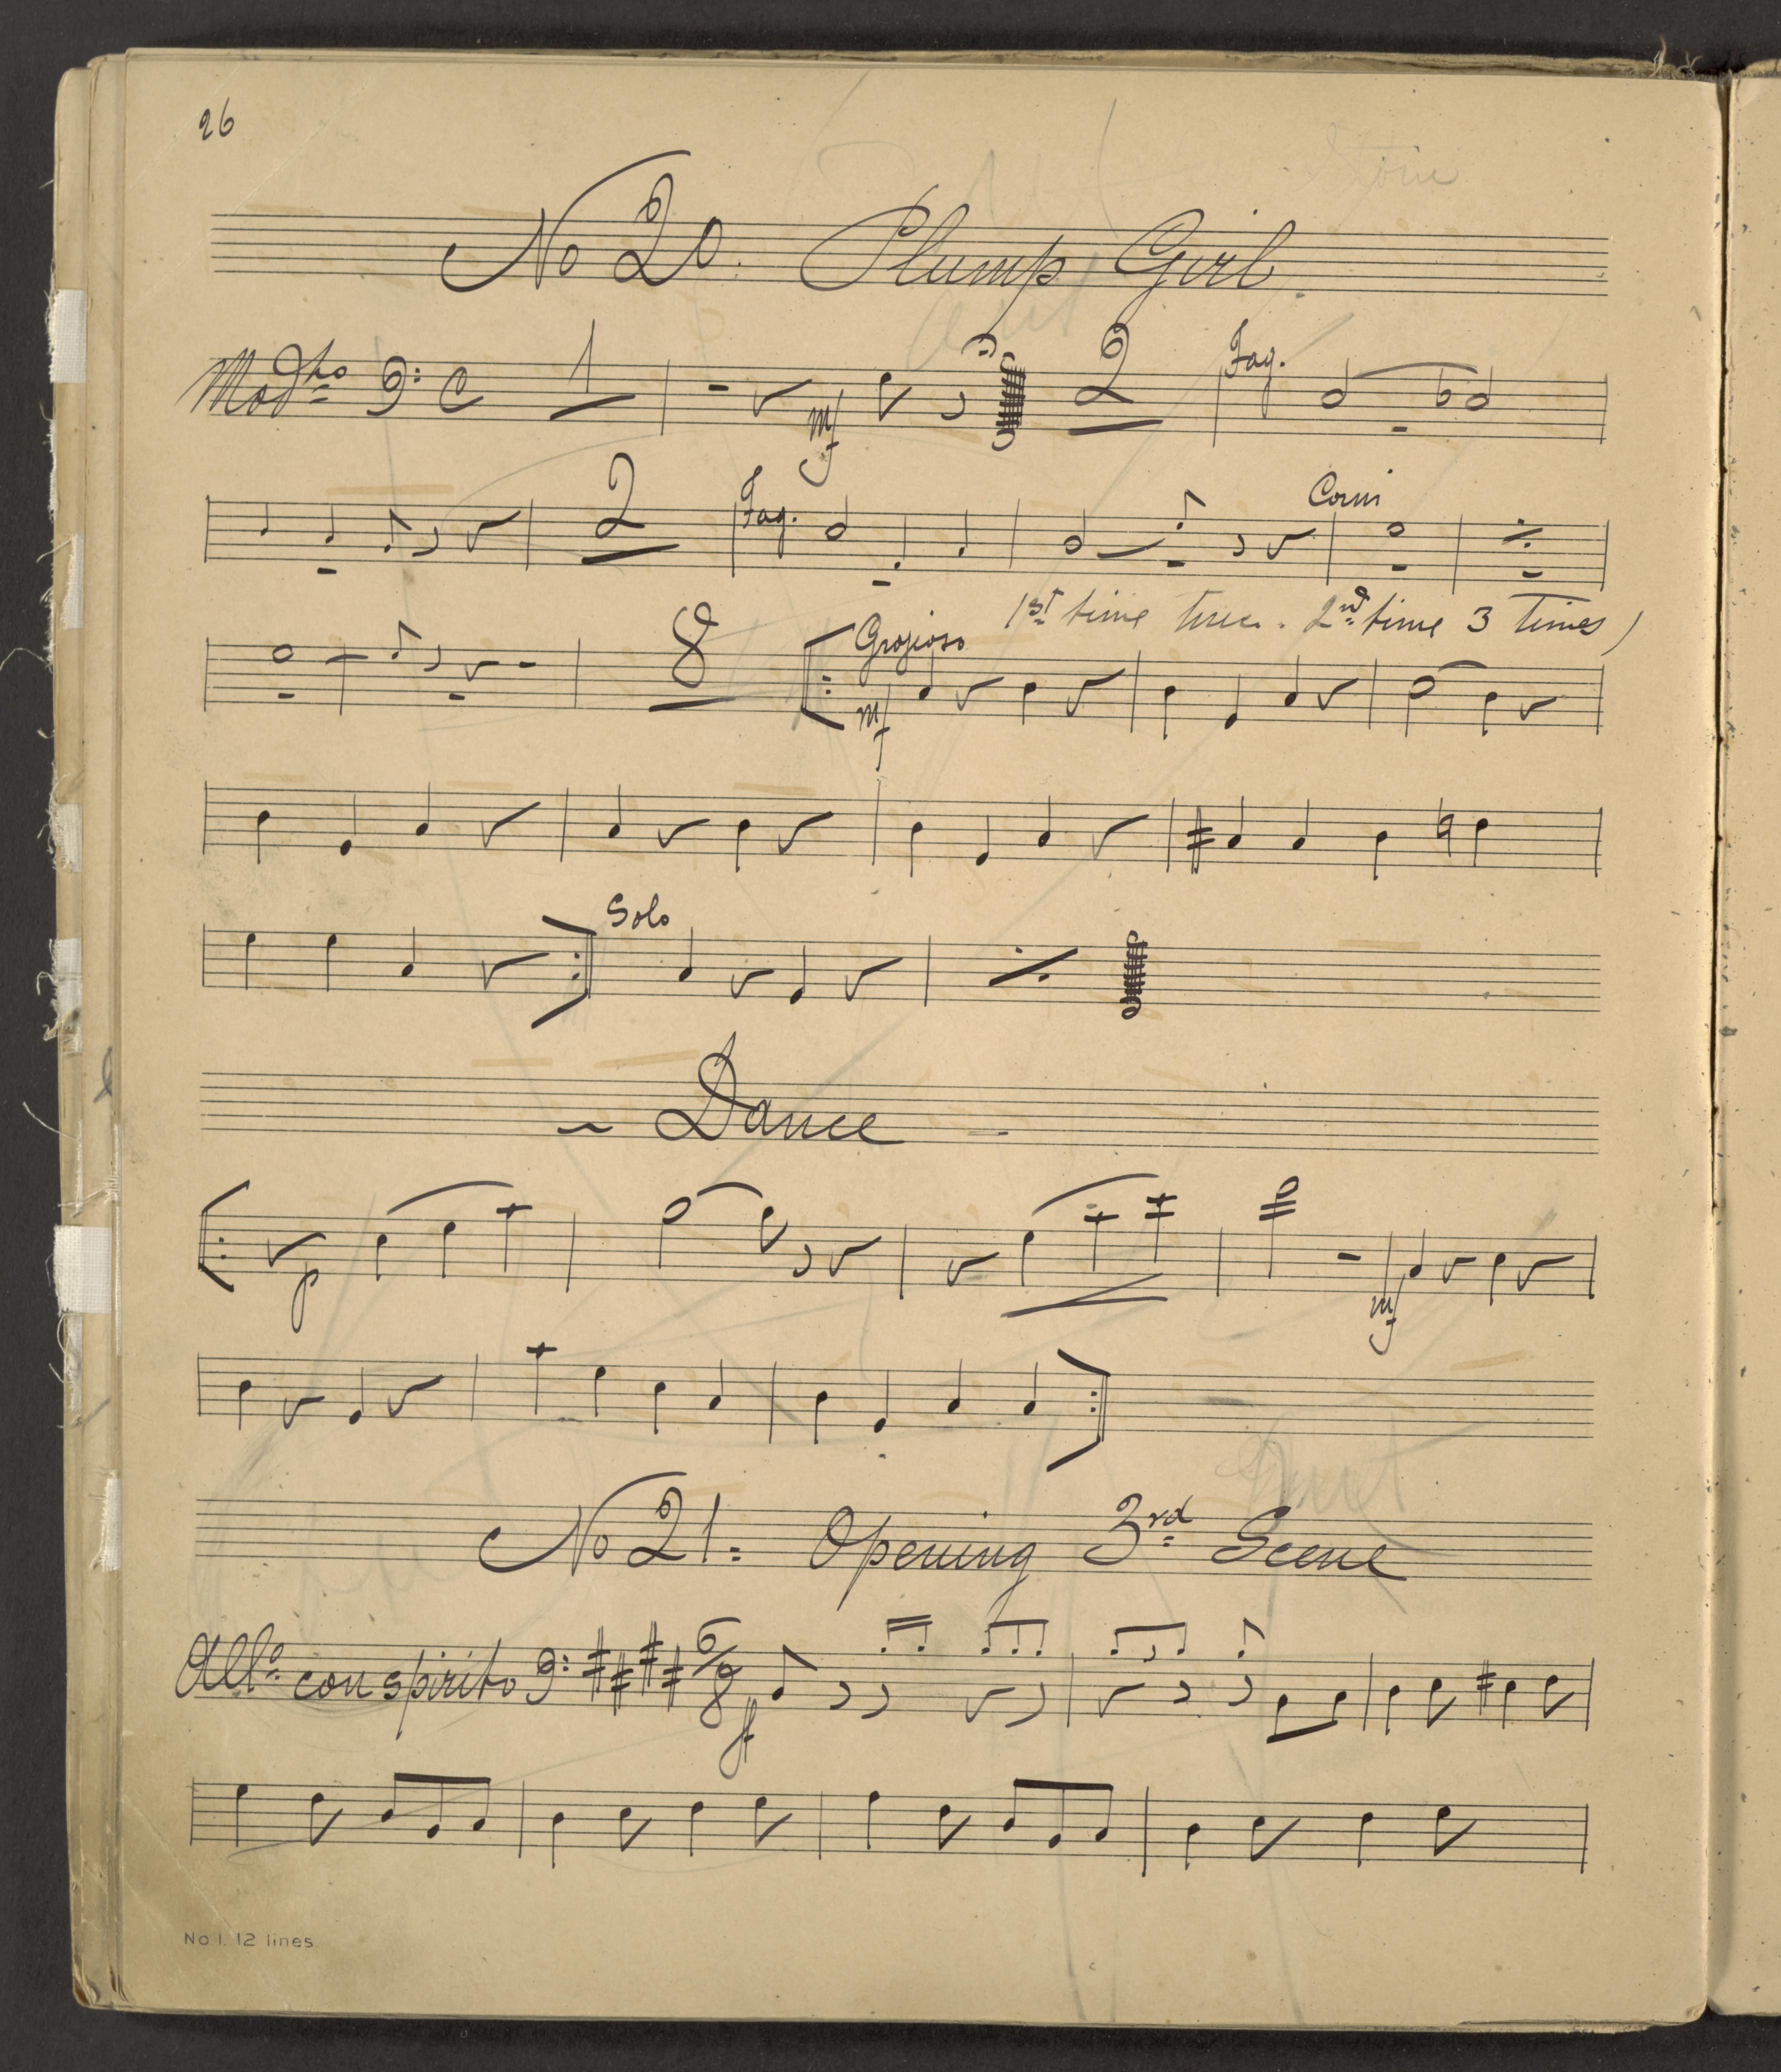 26
No 20. Plump Girl
Modto C 1 mf 2 Fag.
2 Fag. Corni
1st time 2nd time 3 times)
8 Grazioso mf
Solo
~ Dance
p mf
No 21= Opening 3rd Scene
Allo con spirito 6/8 ff
No 1. 12 lines